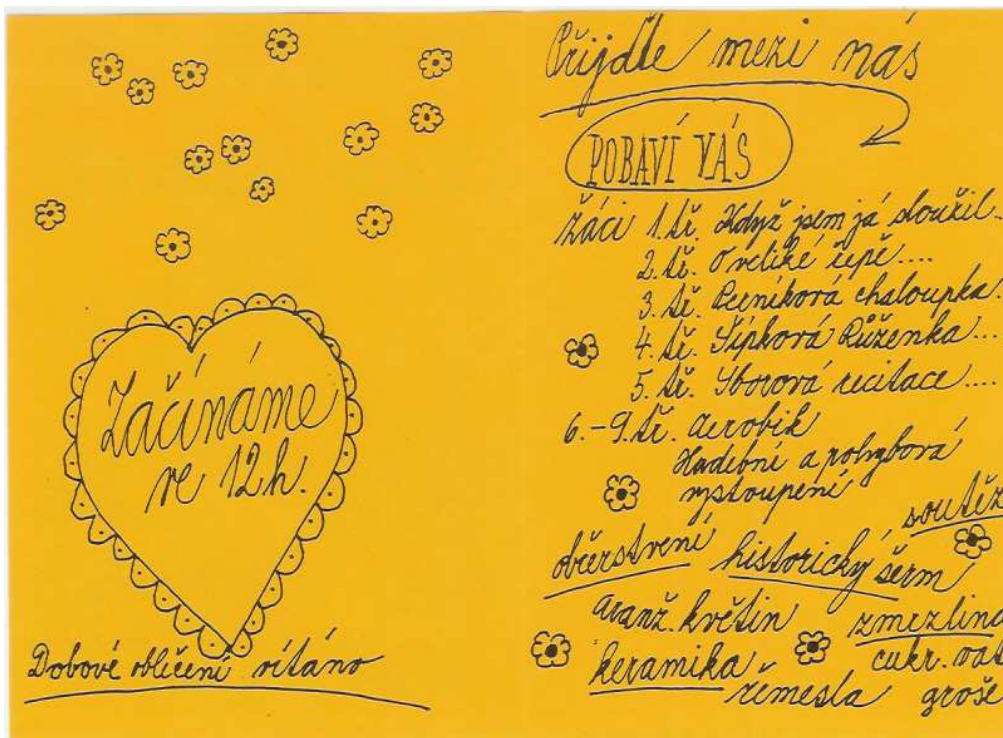 Začínáme
ve 12h.
Dobové oblečení vítáno
Přijďte mezi nás
POBAVÍ VÁS
Žáci 1.tř. Když jsem já sloužil..
2.tř. O veliké řepě....
3.tř. Perníková chaloupka.
4.tř. Šípková Růženka...
5.tř. Sborová recitace....
6.-9.tř. aerobik
Hudební a pohybová
vystoupení
soutěž
občerstvení historický šerm
aranž. květin zmrzlina
keramika cukr. vat
řemesla groše